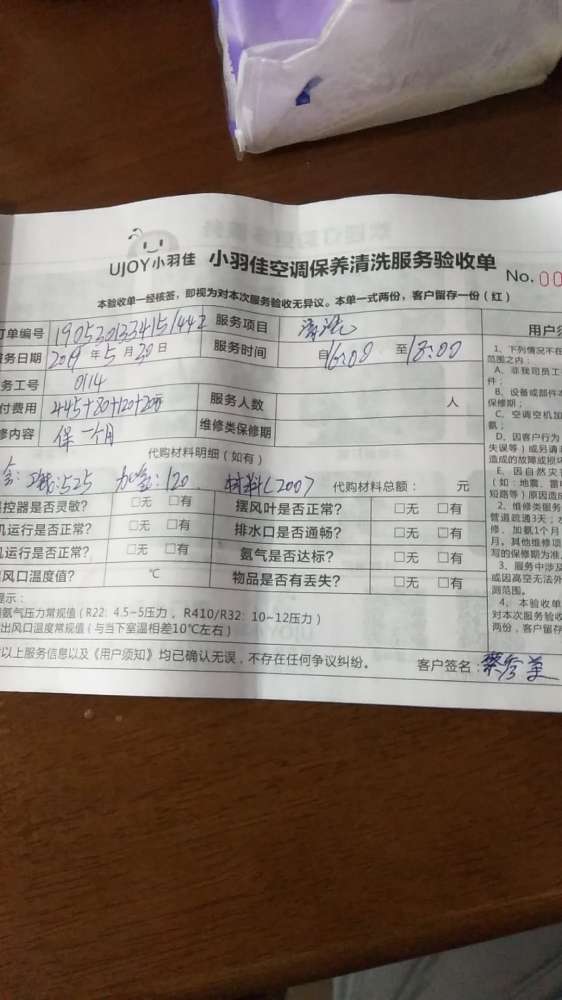 UJOY小羽佳 小羽佳空调保养清洗服务验收单
No. 00
本验收单一经核签，即视为对本次服务验收无异议。本单一式两份，客户留存一份（红）
订单编号 1905301334151442 服务项目 清洗
服务日期 2019 年 5 月 30 日 服务时间 自 16:00 至 18:00
务工号 0114
付费用 445+80+120+200 服务人数 人
修内容 保一个月 维修类保修期
代购材料明细（如有）
:525 :120 材料(200) 代购材料总额： 元
控器是否灵敏？ □无 □有 摆风叶是否正常？ □无 □有
机运行是否正常？ □无 □有 排水口是否通畅？ □无 □有
机运行是否正常？ □无 □有 氨气是否达标？ □无 □有
风口温度值？ ℃ 物品是否有丢失？ □无 □有
提示：
氨气压力常规值（R22: 4.5~5压力 ，R410/R32: 10~12压力）
出风口温度常规值（与当下室温相差10℃左右）
以上服务信息以及《用户须知》均已确认无误，不存在任何争议纠纷。 客户签名：
用户须
1、下列情况不在
范围之内：
A、非我司员工
件；
B、设备或部件本
保修期；
C、空调空机加
氨；
D、因客户行为
失误等）或另请
造成的故障或损坏
E、因自然灾
（如：地震、雷
短路等）原因造成
2、维修类服务
管道疏通3天；水
修、加氨1个月
月，其他维修项
写的保修期为准。
3、服务中涉及
或因高空无法外
测范围。
4、本验收单
对本次服务验收
两份，客户留存